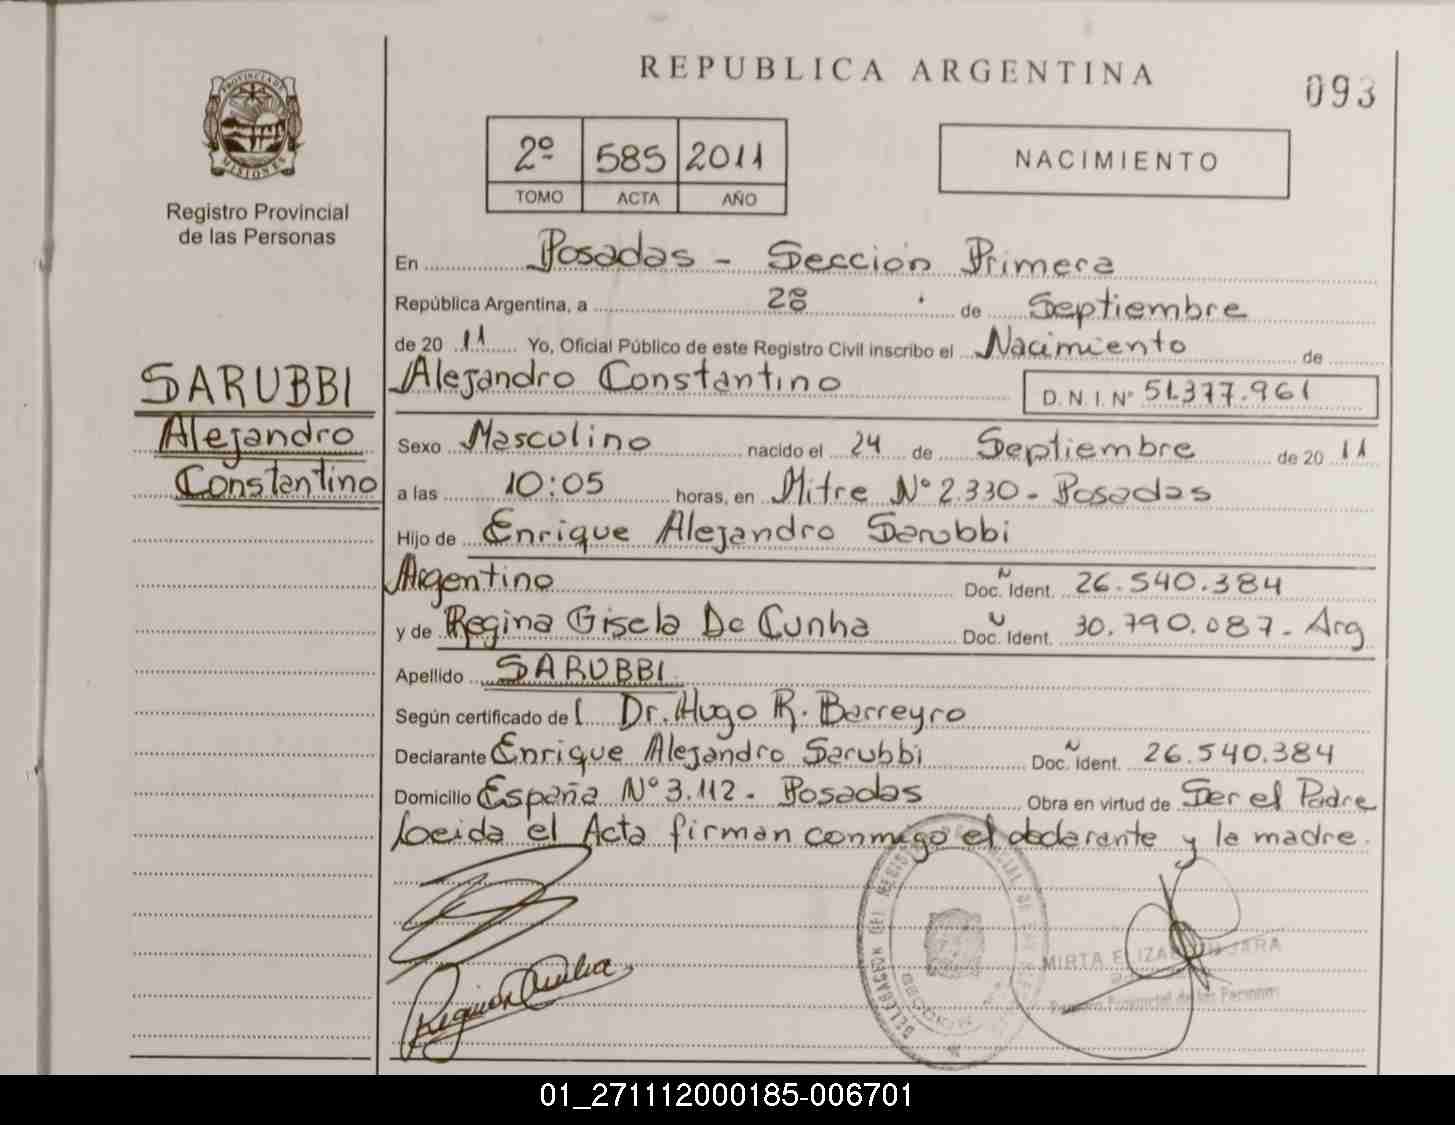 REPUBLICA ARGENTINA
093
PROVINCIA DE
MISIONES
Registro Provincial
de las Personas
2º 585 2011
TOMO ACTA AÑO
NACIMIENTO
SARUBBI
Alejandro
Constantino
En Posadas - Sección Primera
República Argentina, a 28 de Septiembre
de 20 11 Yo, Oficial Público de este Registro Civil inscribo el Nacimiento de
Alejandro Constantino D. N. I. Nº 51.377.961
Sexo Masculino nacido el 24 de Septiembre de 20 11
a las 10:05 horas, en Mitre Nº 2.330 - Posadas
Hijo de Enrique Alejandro Sarubbi
Argentino Doc. Ident. 26.540.384
y de Regina Gisela Da Cunha Doc. Ident. 30.790.087 - Arg
Apellido SARUBBI
Según certificado del Dr. Hugo R. Barreyro
Declarante Enrique Alejandro Sarubbi Doc. Ident. 26.540.384
Domicilio España Nº 3.112 - Posadas Obra en virtud de Ser el Padre
Leida el Acta firman conmigo el declarante y la madre.
MIRTA ELIZABETH JARA
Registro Provincial de las Personas
01_271112000185-006701